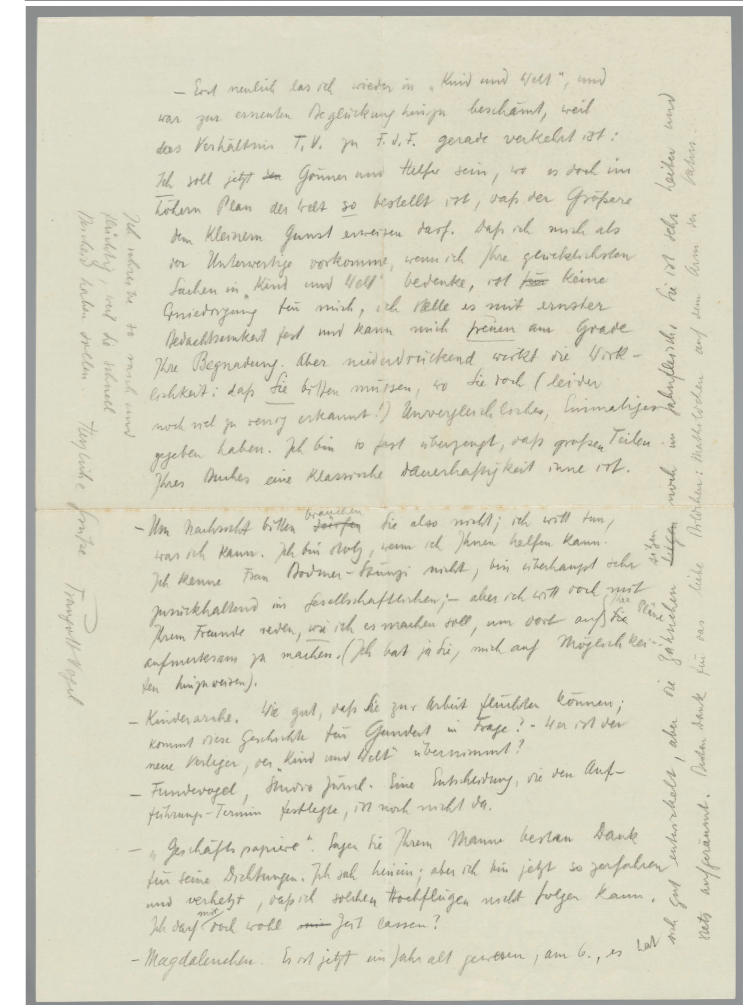 – Erst neulich las ich wieder in „Kind und Welt“, und
war zur erneuten Beglückung hinzu beschämt, weil
das Verhältnis T. V. zu F. d. F. gerade verkehrt ist:
Ich soll jetzt den Gönner und Helfer sein, wo es doch im
höhern Plan der Welt so bestellt ist, dass der Größere
dem Kleinern Gunst erweisen darf. Dass ich mich als
der Unterwertige vorkomme, wenn ich Ihre glücklichsten
Sachen in „Kind und Welt“ bedenke, ist für keine
Erniedrigung für mich, ich stelle es mit ernster
Bedachtsamkeit fest und kann mich freuen am Grade
Ihrer Begnadung. Aber niederdrückend wirkt die Wirk-
lichkeit: dass Sie bitten müssen, wo Sie doch (leider
noch viel zu wenig erkannt!) Unvergleichliches, Einmaliges
gegeben haben. Ich bin so fest überzeugt, dass großen Teilen
Ihres Buches eine klassische Dauerhaftigkeit inne ist.
– Um Nachsicht bitten dürfen brauchen Sie also nicht; ich will tun,
was ich kann. Ich bin stolz, wenn ich Ihnen helfen kann.
Ich kenne Frau Bodmer-Stünzi nicht, bin überhaupt sehr
zurückhaltend im Gesellschaftlichen; – aber ich will doch mit
Ihrem Freunde reden, wie ich es machen soll, um dort auf die
aufmerksam zu machen. (Ich bat ja Sie, mich auf Möglichkei-
ten hinzuweisen).
– Kinderarche. Wie gut, dass Sie zur Arbeit flüchten können;
kommt diese Geschichte für Gundert in Frage? – Wer ist der
neue Verleger, der „Kind und Welt“ übernimmt?
– Fundevogel, Studio Zürich. Eine Entscheidung, die den Auf-
führungs-Termin festlegte, ist noch nicht da.
– „Geschäftspapiere“. Sagen Sie Ihrem Manne besten Dank
für seine Dichtungen. Ich sah hinein; aber ich bin jetzt so zerfahren
und verhetzt, dass ich solchen Hochflügen nicht folgen kann.
Ich darf mir doch wohl Zeit lassen?
– Magdalenchen. Es ist jetzt ein Jahr alt gewesen, am 6., es hat
sich gut entwickelt, aber die Zähnchen liegen sitzen noch im Zahnfleisch. Sie ist sehr heiter und
stets aufgeräumt. Vielen Dank für das liebe Bildchen: Mathildchen auf dem Arm der
Ich schreibe so rasch und
flüchtig, weil Sie schnell
Bescheid haben sollen. Herzliche Grüße
Traugott Vogel